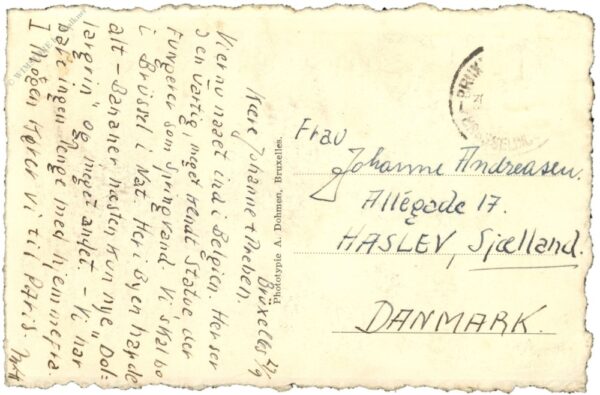 Brüxelles 27/9
Kære Johanne + Preben.
Vi er nu naaet ind i Belgien. Her ser
I en meget kendt Statue, der
Fungerer som Springvand. Vi skal bo
i Brüssel i Nat. Her i Byen har de
alt - Bananer næsten kun nye "Dol-
largrin" og meget andet. - Vi har
bare ingen Penge med hjemmefra.
I Morgen kører vi til Paris.
Phototypie A. Dohmen, Bruxelles.
Frau
Johanne Andreasen.
Allégade 17.
HASLEV, Sjælland.
DANMARK.